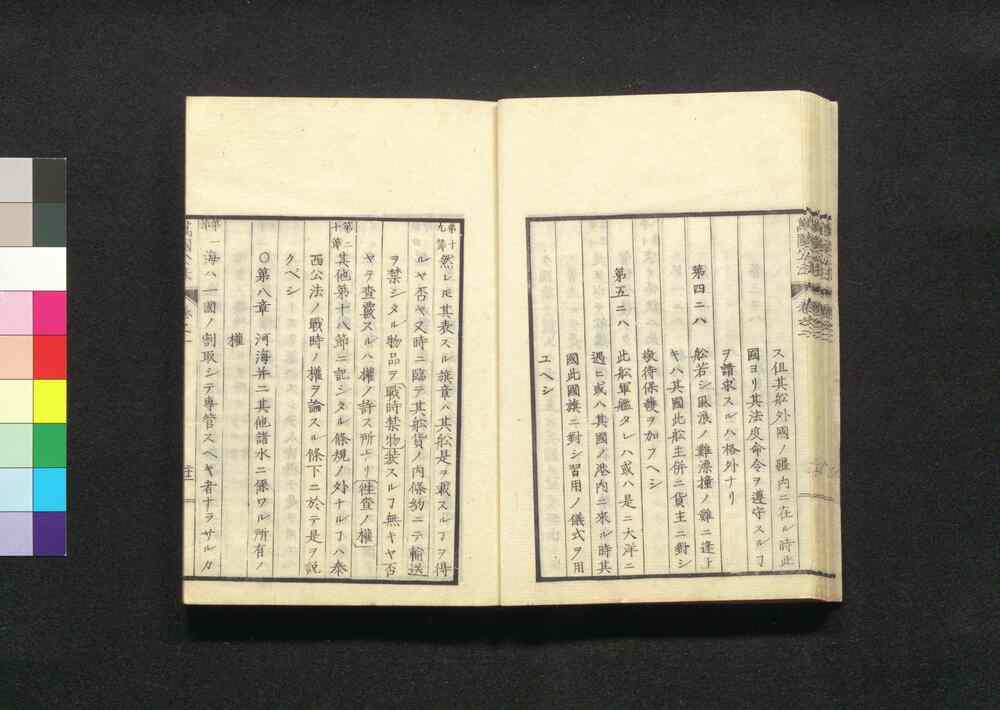 ス但其舩外國ノ疆内ニ在ル時此
國ヨリ其法度命令ヲ遵守スルヿ
ヲ請求スルハ格外ナリ
第四ニハ 舩若シ風浪ノ難漂撞ノ難ニ逢フ
キハ其國此舩主併ニ貨主ニ對シ
敬待保護ヲ加フヘシ
第五ニハ 此舩軍艦タレハ或ハ是ニ大洋ニ
遇ヒ或ハ其國ノ港内ニ來ル時其
國此國旗ニ對シ習用ノ儀式ヲ用
ユヘシ
第十九節 然レ𪜈其表スル旗章ハ其舩是ヲ載スルヿヲ得
ルヤ否ヤ又時ニ臨テ其舩貨ノ内條約ニテ輸送
ヲ禁シタル物品ヲ戰時禁物装スルヿ無キヤ否
ヤヲ査覈スルハ權ノ許ス所ナリ徃査ノ權
第二十節 其他第十八節ニ記シタル條規ノ外ナルヿハ泰
西公法ノ戰時ノ權ヲ論スル條下ニ於テ是ヲ説
クベシ
〇第八章 河海并ニ其他諸水ニ係ワル所有ノ
權
一海ハ一國ノ割取シテ專管スベキ者ナラサルカ